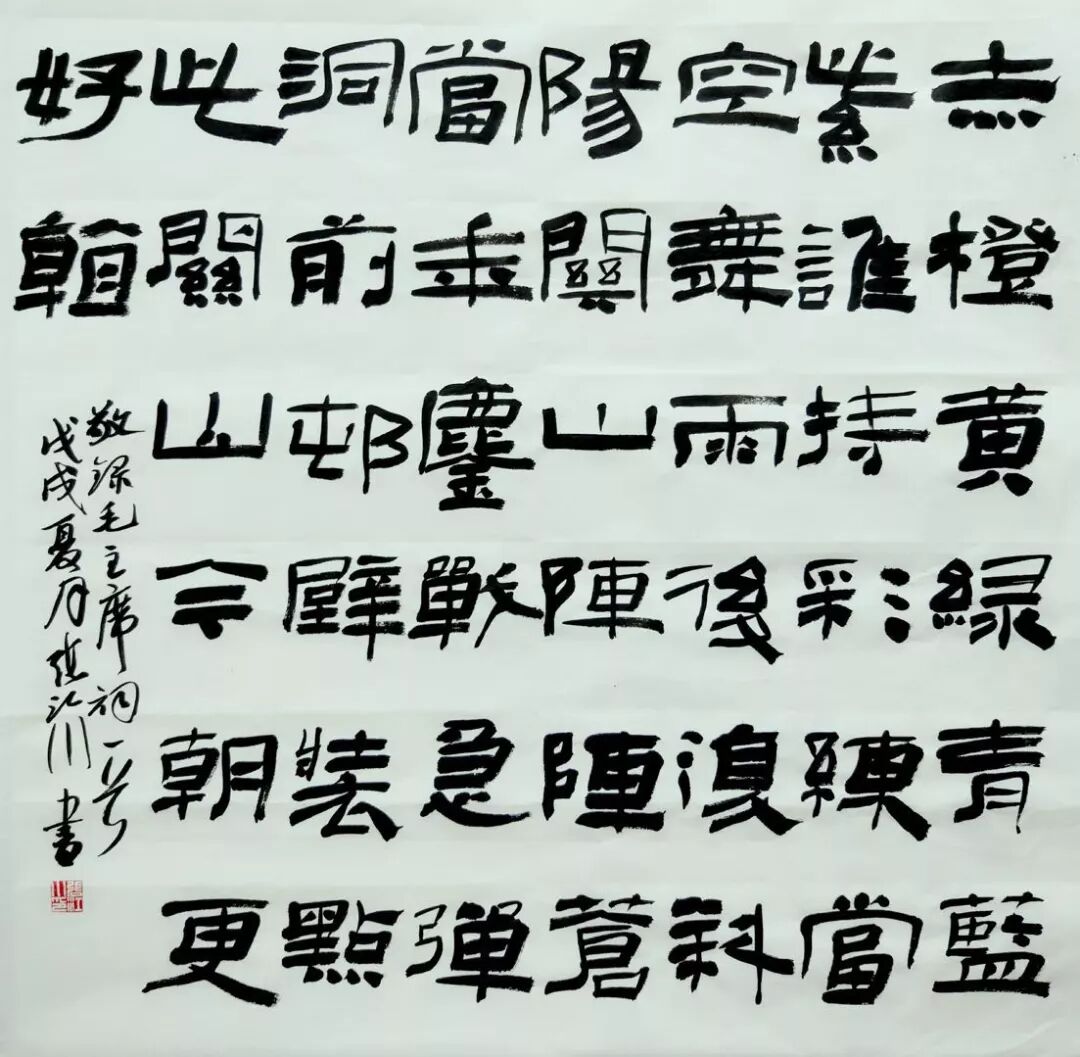 赤橙黄緑青藍
紫誰持彩練當
空舞雨後復斜
陽關山陣陣蒼
當年鏖戰急彈
洞前邨壁裝點
此關山今朝更
好看
敬録毛主席詞一首
戊戌夏月張江川書